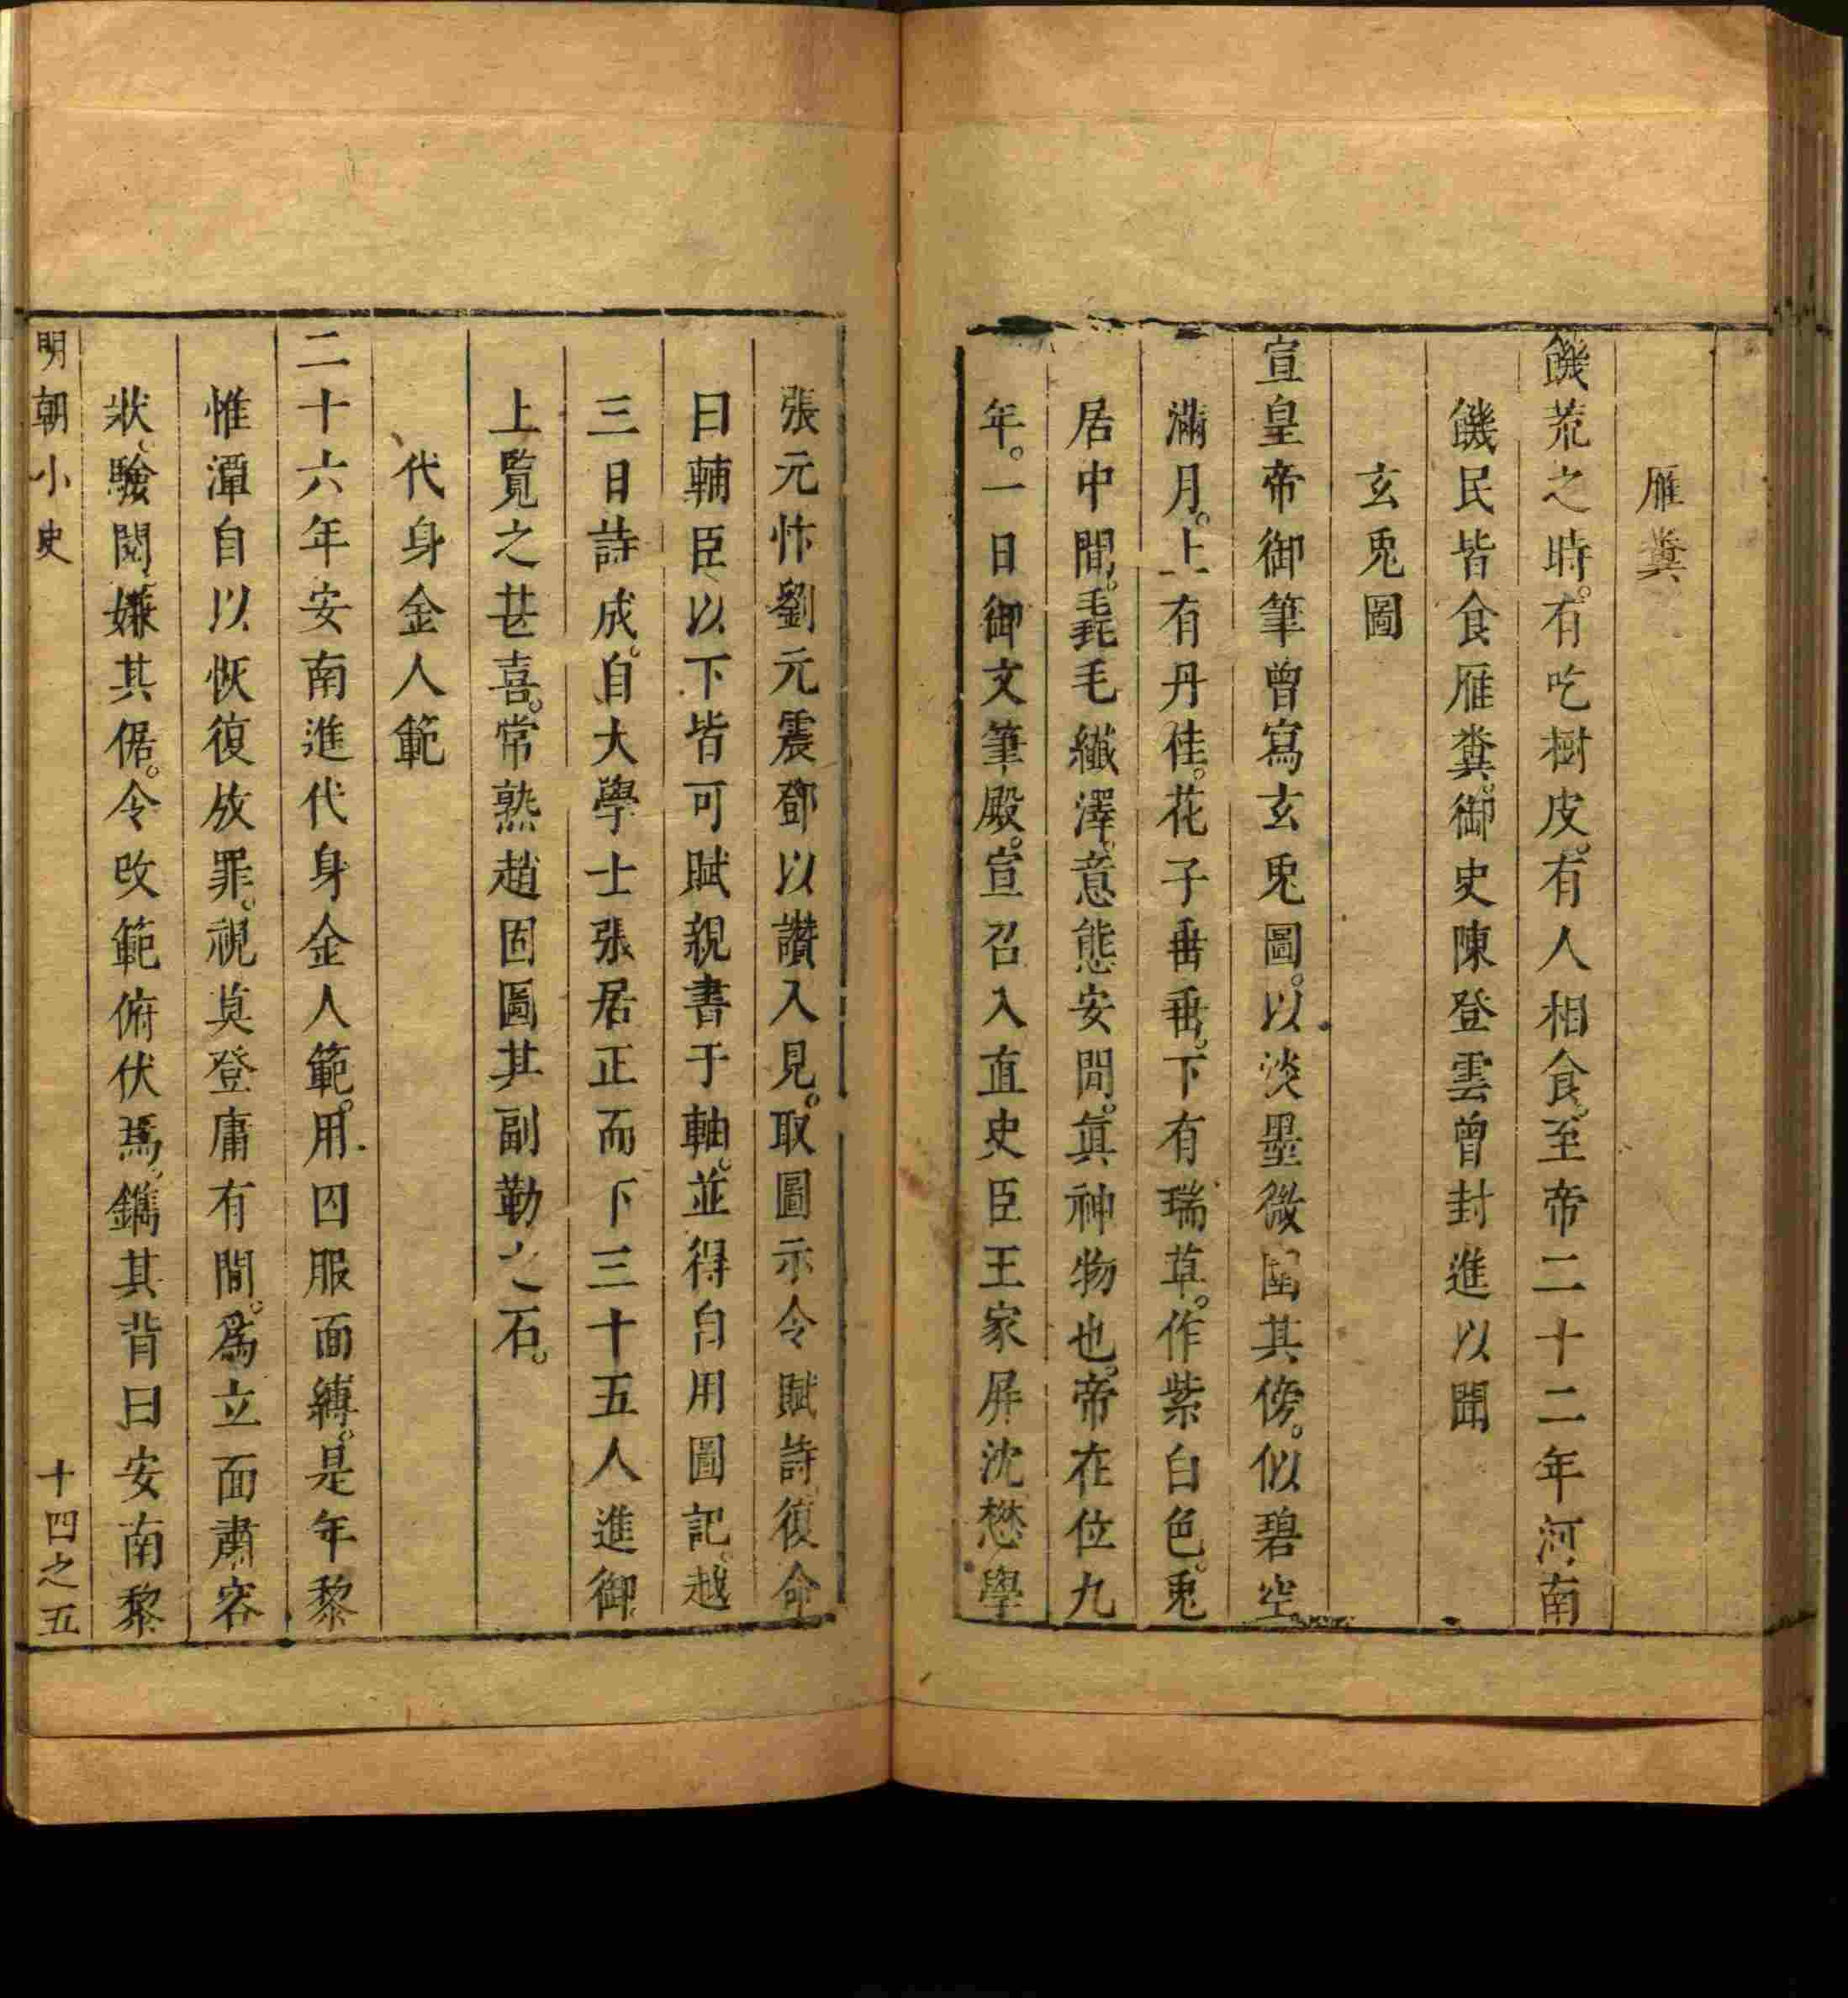 雁糞
饑荒之時。有吃樹皮。有人相食。至帝二十二年河南
饑民皆食雁糞。御史陳登雲曾封進以聞
玄兎圖
宣皇帝御筆曾寫玄兎圖。以淡墨微圍其傍。似碧空。
滿月。上有丹佳。花子垂垂。下有瑞草。作紫白色。兎
居中間。毳毛纖澤。意態安閒。眞神物也。帝在位九
年。一日御文筆殿。宣召入直史臣王家屏沈懋學
張元忭劉元震鄧以讚入見。取圖示令賦詩復命
曰輔臣以下皆可賦親書于軸。並得自用圖記。越
三日詩成。自大學士張居正而下三十五人進御
上覧之甚喜。常熟趙固圖其副勒之石。
代身金人範
二十六年安南進代身金人範。用囚服面縳。是年黎
惟潭自以恢復放罪。視莫登庸有間。爲立面肅容
狀、驗閱嫌其倨。令改範俯伏焉。鐫其背曰安南黎
明朝小史 十四之五